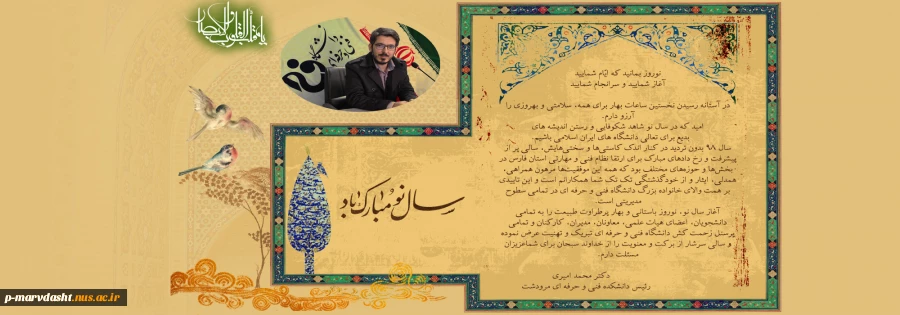 یا مقلب القلوب و الابصار
نوروز بمانید که ایّام شمایید
آغاز شمایید و سرانجام شمایید
در آستانه رسیدن نخستین ساعات بهار برای همه، سلامتی و بهروزی را
آرزو دارم.
امید که در سال نو شاهد شکوفایی و رستن اندیشه های
بدیع برای تعالی دانشگاه های ایران اسلامی باشیم.
سال ۹۸ بدون تردید در کنار اندک کاستی‌ها و سختی‌هایش، سالی پر از
پیشرفت و رخ دادهای مبارک برای ارتقا نظام فنی و مهارتی استان فارس در
بخش‌ها و حوزه‌های مختلف بود که همه این موفقیت‌ها مرهون همراهی،
همدلی، ایثار و از خودگذشتگی تک تک شما همکارانم است و این تاییدی
بر همت والای خانواده بزرگ دانشگاه فنی و حرفه ای در تمامی سطوح
مدیریتی است.
آغاز سال نو، نوروز باستانی و بهار پرطراوت طبیعت را به تمامی
دانشجویان، اعضای هیات علمی، معاونان، مدیران، کارکنان و تمامی
پرسنل زحمت کش دانشگاه فنی و حرفه ای تبریک و تهنیت عرض نموده
و سالی سرشار از برکت و معنویت را از خداوند سبحان برای شماعزیزان
مسئلت دارم.
دکتر محمد امیری
رئیس دانشکده فنی و حرفه ای مرودشت
سال نو مبارک باد
p-marvdasht.nus.ac.ir